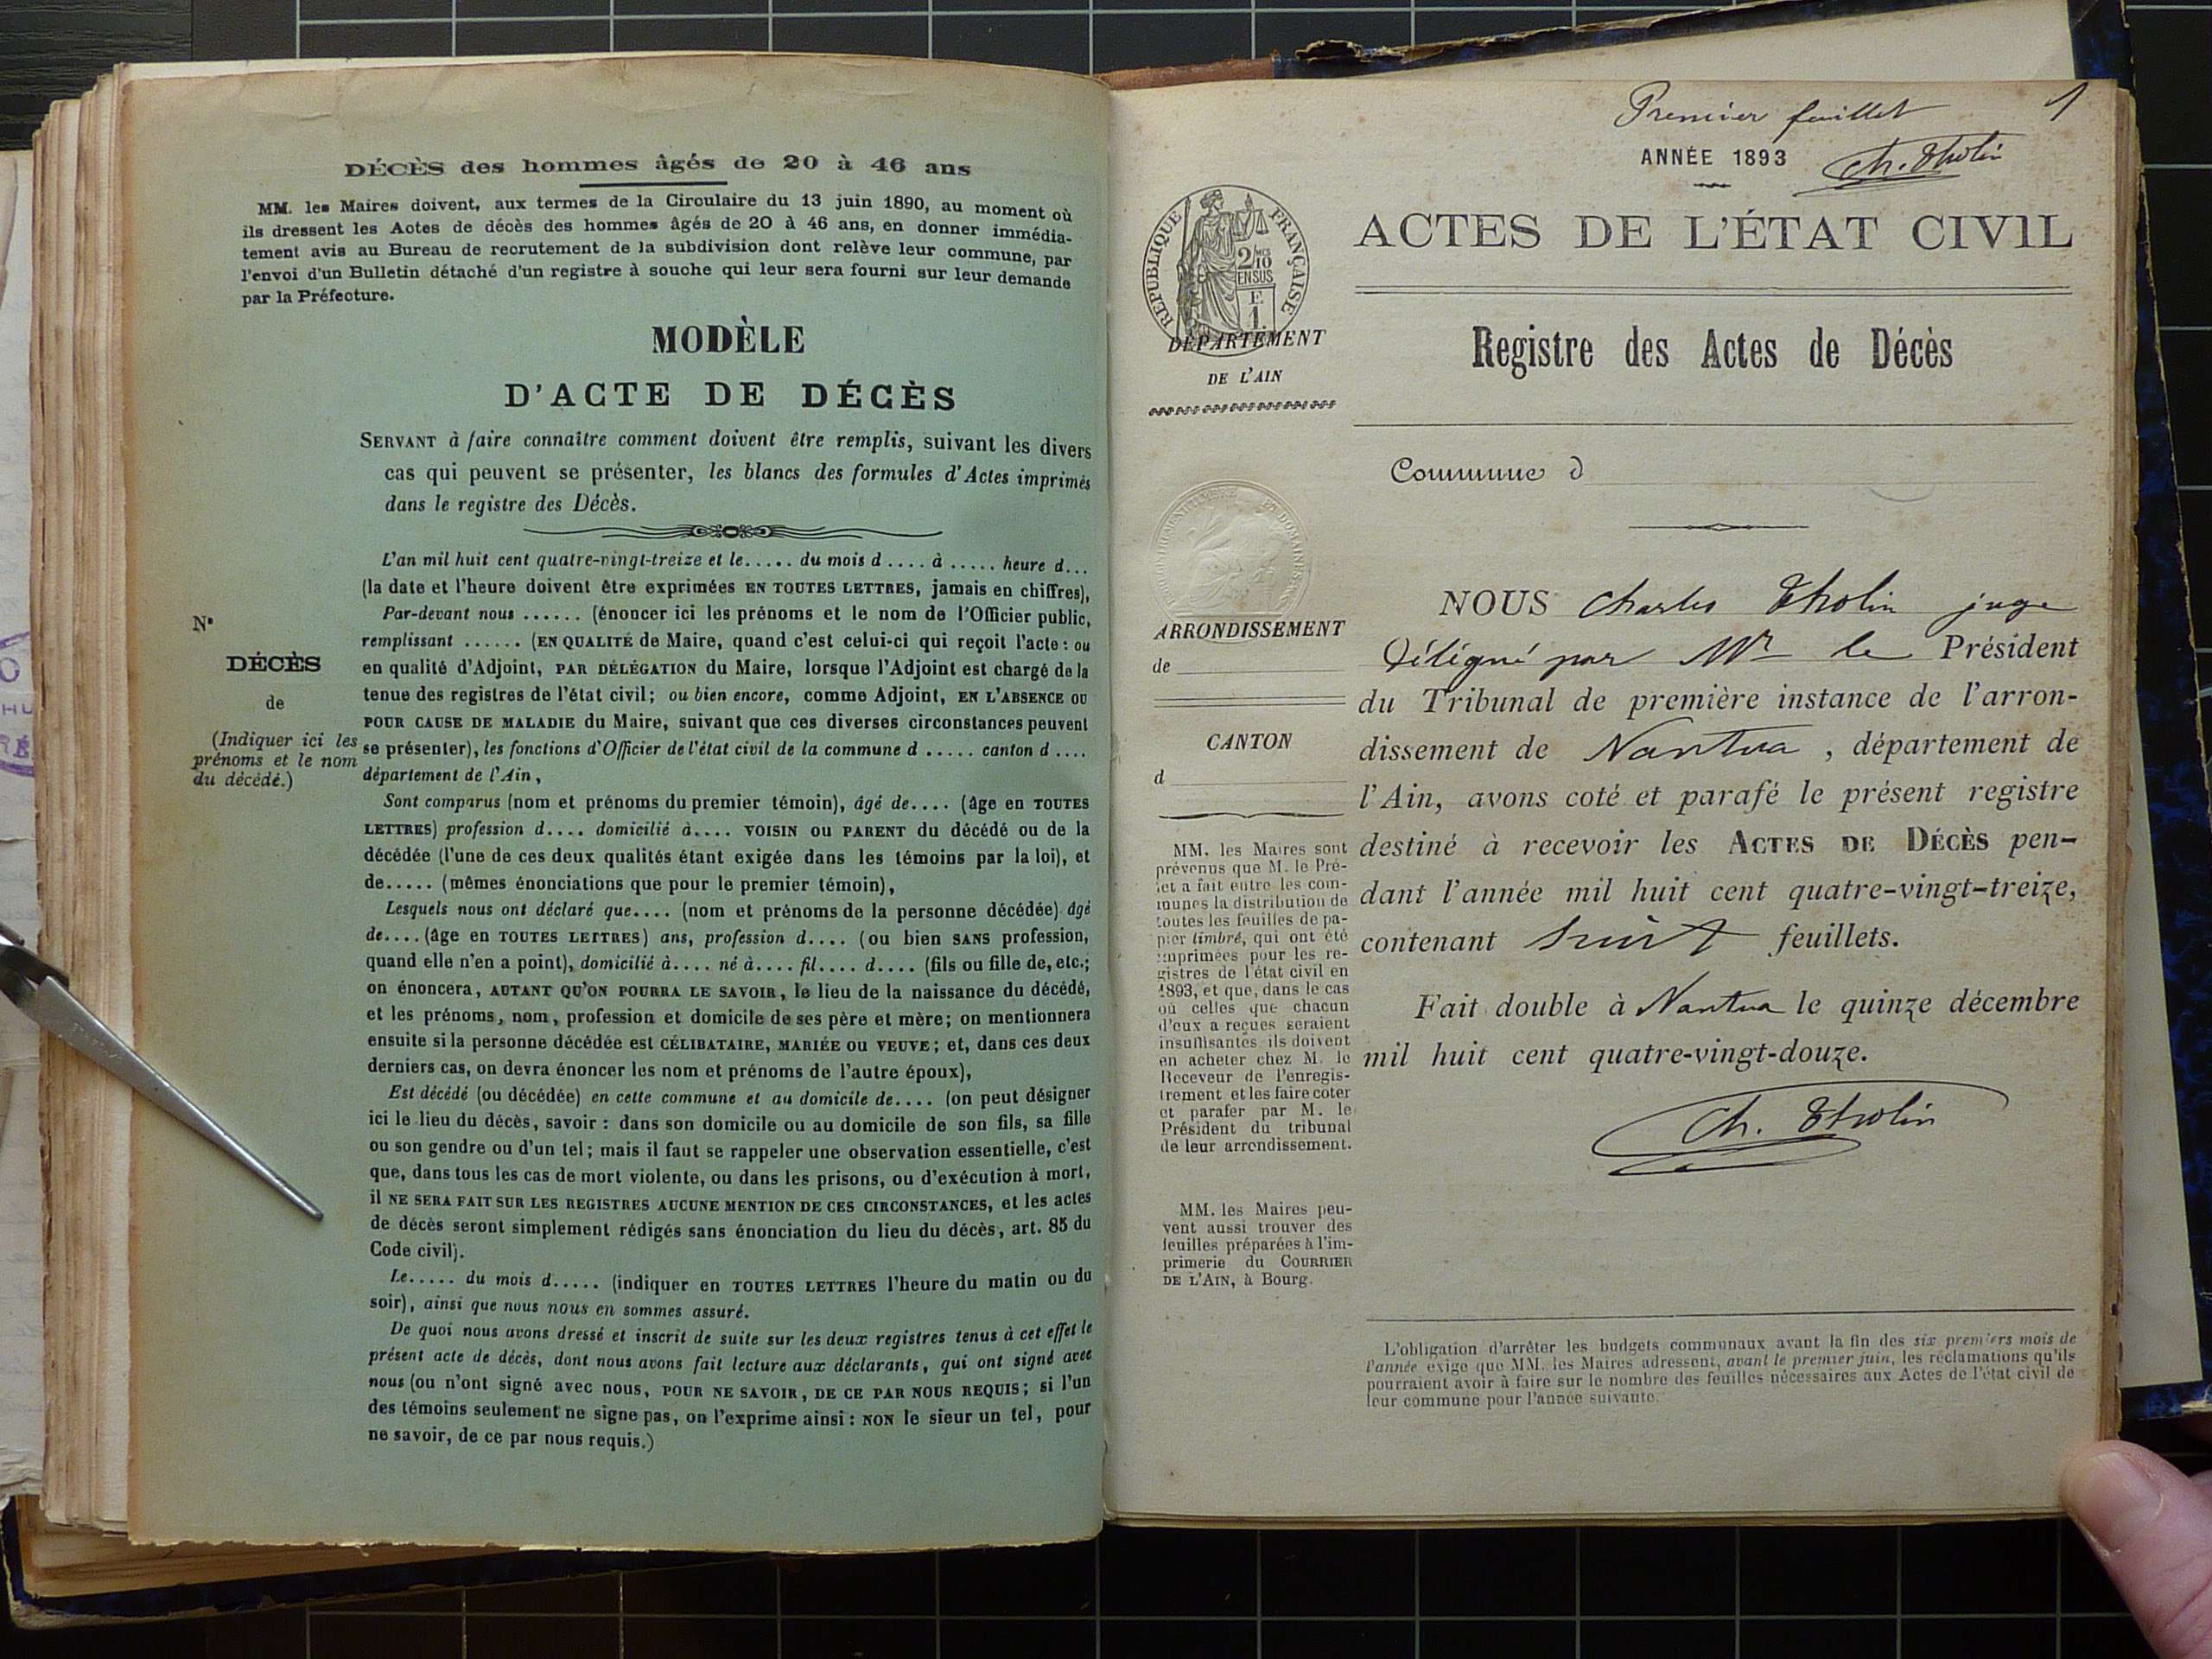 DÉCÈS des hommes âgés de 20 à 46 ans
MM. les Maires doivent, aux termes de la Circulaire du 13 juin 1890, au moment où
ils dressent les Actes de décès des hommes âgés de 20 à 46 ans, en donner immédia-
tement avis au Bureau de recrutement de la subdivision dont relève leur commune, par
l'envoi d'un Bulletin détaché d'un registre à souche qui leur sera fourni sur leur demande
par la Préfecture.
MODÈLE
D'ACTE DE DÉCÈS
SERVANT à faire connaître comment doivent être remplis, suivant les divers
cas qui peuvent se présenter, les blancs des formules d'Actes imprimés
dans le registre des Décès.
N°
DÉCÈS
de
(Indiquer ici les
prénoms et le nom
du décédé.)
L'an mil huit cent quatre-vingt-treize et le..... du mois d .... à ..... heure d...
(la date et l'heure doivent être exprimées EN TOUTES LETTRES, jamais en chiffres),
Par-devant nous ...... (énoncer ici les prénoms et le nom de l'Officier public,
remplissant ...... (EN QUALITÉ de Maire, quand c'est celui-ci qui reçoit l'acte: ou
en qualité d'Adjoint, PAR DÉLÉGATION du Maire, lorsque l'Adjoint est chargé de la
tenue des registres de l'état civil; ou bien encore, comme Adjoint, EN L'ABSENCE OU
POUR CAUSE DE MALADIE du Maire, suivant que ces diverses circonstances peuvent
se présenter), les fonctions d'Officier de l'état civil de la commune d ..... canton d ....
département de l'Ain,
Sont comparus (nom et prénoms du premier témoin), âgé de.... (âge en TOUTES
LETTRES) profession d.... domicilié à.... VOISIN OU PARENT du décédé ou de la
décédée (l'une de ces deux qualités étant exigée dans les témoins par la loi), et
de..... (mêmes énonciations que pour le premier témoin),
Lesquels nous ont déclaré que.... (nom et prénoms de la personne décédée) âgé
de.... (âge en TOUTES LETTRES) ans, profession d.... (ou bien SANS profession,
quand elle n'en a point), domicilié à.... né à.... fil.... d.... (fils ou fille de, etc.;
on énoncera, AUTANT QU'ON POURRA LE SAVOIR, le lieu de la naissance du décédé,
et les prénoms, nom, profession et domicile de ses père et mère; on mentionnera
ensuite si la personne décédée est CÉLIBATAIRE, MARIÉE OU VEUVE; et, dans ces deux
derniers cas, on devra énoncer les nom et prénoms de l'autre époux),
Est décédé (ou décédée) en cette commune et au domicile de.... (on peut désigner
ici le lieu du décès, savoir: dans son domicile ou au domicile de son fils, sa fille
ou son gendre ou d'un tel; mais il faut se rappeler une observation essentielle, c'est
que, dans tous les cas de mort violente, ou dans les prisons, ou d'exécution à mort,
il NE SERA FAIT SUR LES REGISTRES AUCUNE MENTION DE CES CIRCONSTANCES, et les actes
de décès seront simplement rédigés sans énonciation du lieu du décès, art. 85 du
Code civil).
Le..... du mois d..... (indiquer en TOUTES LETTRES l'heure du matin ou du
soir), ainsi que nous nous en sommes assuré.
De quoi nous avons dressé et inscrit de suite sur les deux registres tenus à cet effet le
présent acte de décès, dont nous avons fait lecture aux déclarants, qui ont signé avec
nous (ou n'ont signé avec nous, POUR NE SAVOIR, DE CE PAR NOUS REQUIS; si l'un
des témoins seulement ne signe pas, on l'exprime ainsi: NON le sieur un tel, pour
ne savoir, de ce par nous requis.)
Premier feuillet 1
ANNÉE 1893 Ch. Tholin
ACTES DE L'ÉTAT CIVIL
RÉPUBLIQUE FRANÇAISE
2/10
EN SUS
E.
1.
DÉPARTEMENT
DE L'AIN
Registre des Actes de Décès
Commune d
ARRONDISSEMENT
de
CANTON
d
MM. les Maires sont
prévenus que M. le Pré-
fet a fait entre les com-
munes la distribution de
toutes les feuilles de pa-
pier timbré, qui ont été
imprimées pour les re-
gistres de l'état civil en
1893, et que, dans le cas
où celles que chacun
d'eux a reçues seraient
insuffisantes, ils doivent
en acheter chez M. le
Receveur de l'enregis-
trement et les faire coter
et parafer par M. le
Président du tribunal
de leur arrondissement.
MM. les Maires peu-
vent aussi trouver des
feuilles préparées à l'im-
primerie du COURRIER
DE L'AIN, à Bourg.
NOUS Charles Tholin juge
délégué par Mr le Président
du Tribunal de première instance de l'arron-
dissement de Nantua, département de
l'Ain, avons coté et parafé le présent registre
destiné à recevoir les ACTES DE DÉCÈS pen-
dant l'année mil huit cent quatre-vingt-treize,
contenant feuillets.
Fait double à Nantua le quinze décembre
mil huit cent quatre-vingt-douze.
Ch. Tholin
L'obligation d'arrêter les budgets communaux avant la fin des six premiers mois de
l'année exige que MM. les Maires adressent, avant le premier juin, les réclamations qu'ils
pourraient avoir à faire sur le nombre des feuilles nécessaires aux Actes de l'état civil de
leur commune pour l'année suivante.